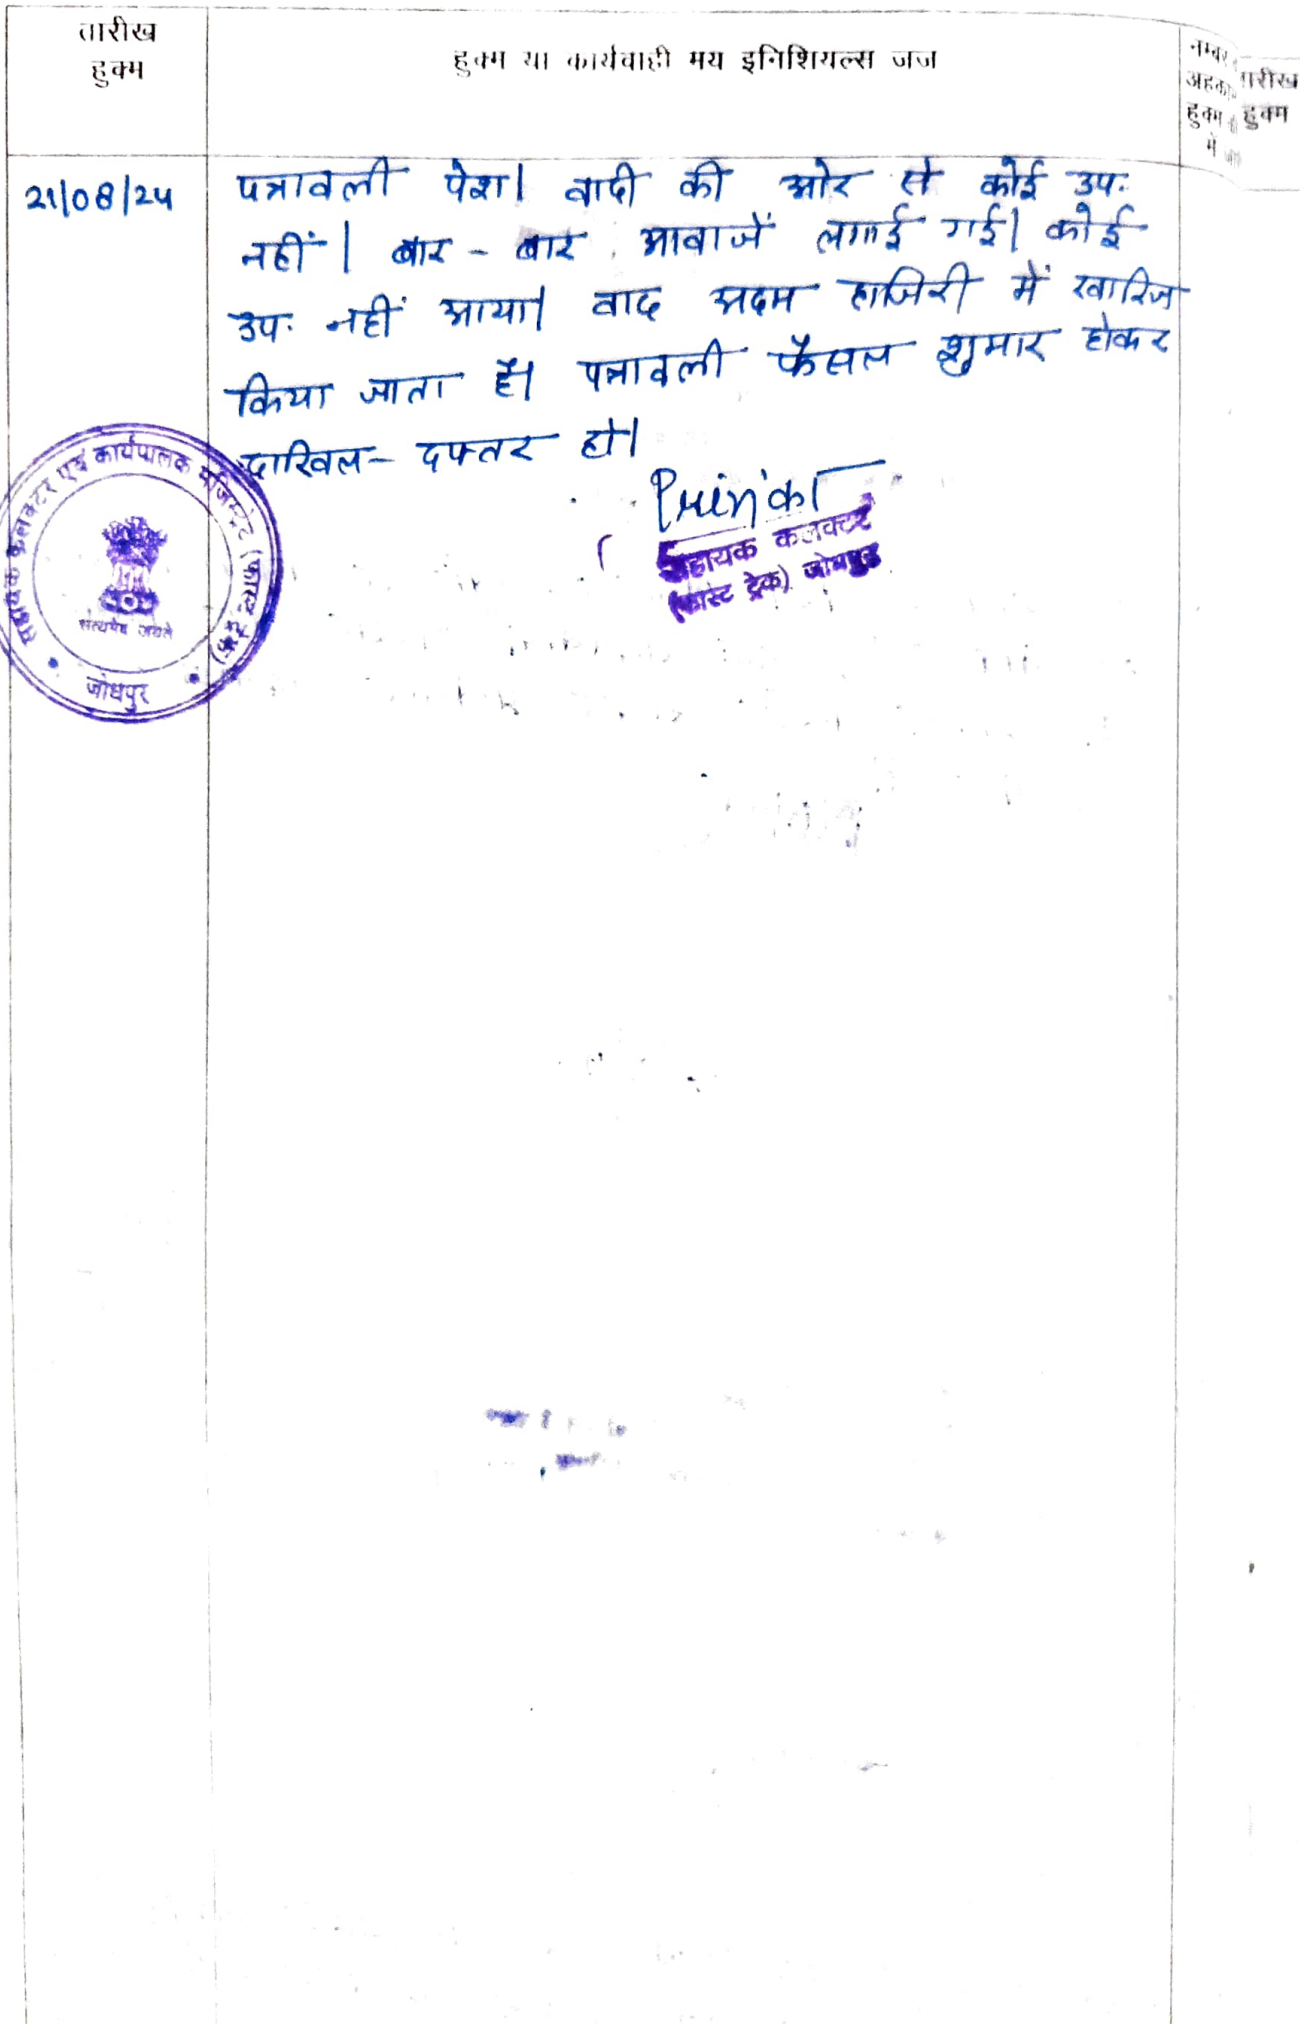 तारीख
हुक्म
हुक्म या कार्यवाही मय इनिशियल्स जज
नम्बर
हुक्म
में
तारीख
हुक्म
21/08/24
पत्रावली पेश। वादी की ओर से कोई उप.
नहीं। बार - बार आवाजें लगाई गई। कोई
उप. नहीं आया। वाद अदम हाजिरी में खारिज
किया जाता है। पत्रावली फैसल शुमार होकर
दाखिल - दफ्तर हो।
सहायक कलक्टर
(फास्ट ट्रेक) जोधपुर
सहायक कलक्टर एवं कार्यपालक मजिस्ट्रेट (फास्ट ट्रेक)
सत्यमेव जयते
जोधपुर